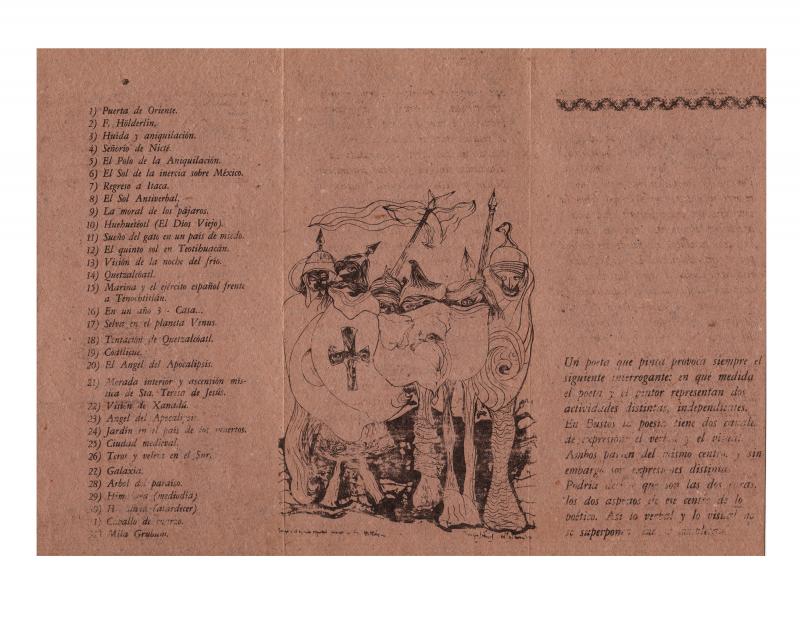 1) Puerta de Oriente.
2) F. Hölderlin.
3) Huida y aniquilación.
4) Señorío de Nicté.
5) El Polo de la Aniquilación.
6) El Sol de la inercia sobre México.
7) Regreso a Itaca.
8) El Sol Antiverbal.
9) La moral de los pájaros.
10) Huehueteótl (El Dios Viejo).
11) Sueño del gato en un país de miedo.
12) El quinto sol en Teotihuacán.
13) Visión de la noche del frío.
14) Quetzalcóatl.
15) Marina y el ejército español frente
a Tenochtitlán.
16) En un año 3 - Casa...
17) Selva en el planeta Venus.
18) Tentación de Quetzalcóatl.
19) Coatlicue.
20) El Angel del Apocalipsis.
21) Morada interior y ascensión mís-
tica de Sta. Teresa de Jesús.
22) Visión de Xanadú.
23) Angel del Apocalipsis
24) Jardín en el país de los muertos.
25) Ciudad medieval.
26) Toros y veleta en el Sur.
27) Galaxia.
28) Arbol del paraíso.
29) (mediodía)
30) (atardecer)
31) Caballo de
32) Mila Grubum.
Un poeta que pinta provoca siempre el
siguiente interrogante: en que medida
el poeta y el pintor representan dos
actividades distintas, independientes.
En Bustos la poesía tiene dos canales
de expresión: el verbal y el visual.
Ambos parten del mismo centro y sin
embargo son expresiones distintas.
Podría que son las dos caras,
los dos aspectos de ese centro de lo
poético. Así lo verbal y lo visual no
se superponen